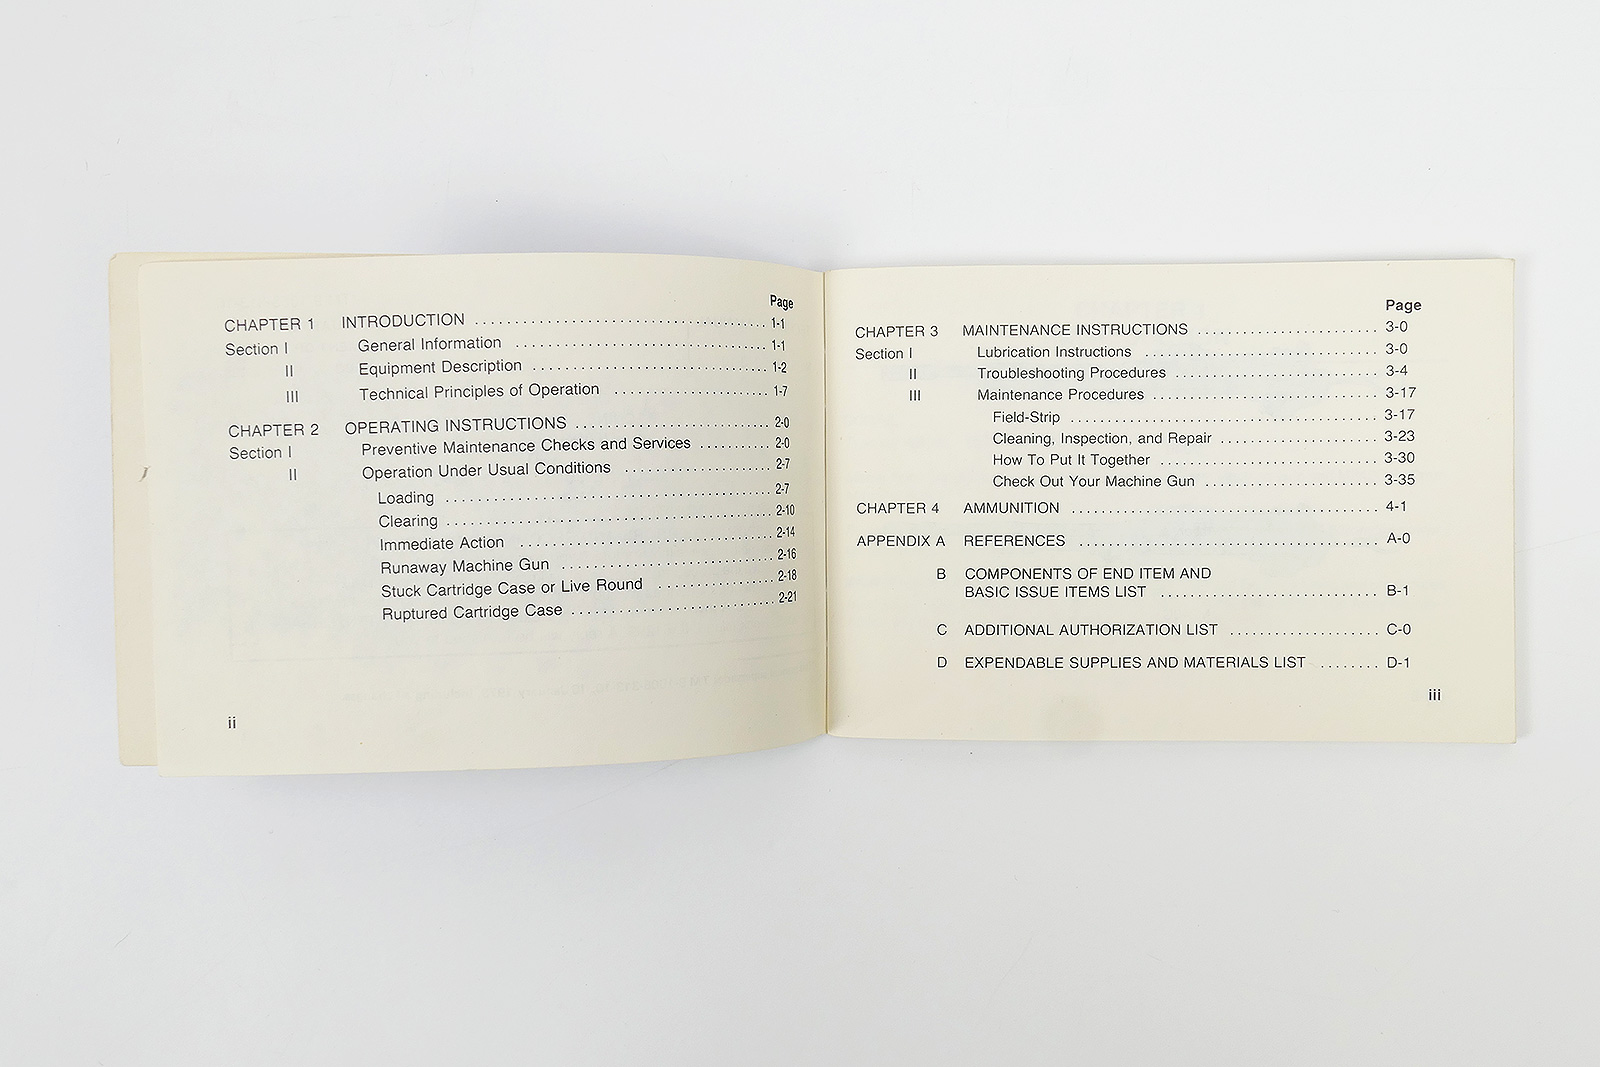 Page
CHAPTER 1 INTRODUCTION ........................................ 1-1
Section I General Information ................................ 1-1
II Equipment Description .............................. 1-2
III Technical Principles of Operation .................... 1-7
CHAPTER 2 OPERATING INSTRUCTIONS ........................ 2-0
Section I Preventive Maintenance Checks and Services .......... 2-0
II Operation Under Usual Conditions .................. 2-7
Loading .......................................... 2-7
Clearing .......................................... 2-10
Immediate Action ................................ 2-14
Runaway Machine Gun ............................ 2-16
Stuck Cartridge Case or Live Round ................ 2-18
Ruptured Cartridge Case .......................... 2-21
ii
Page
CHAPTER 3 MAINTENANCE INSTRUCTIONS ........................ 3-0
Section I Lubrication Instructions .............................. 3-0
II Troubleshooting Procedures .......................... 3-4
III Maintenance Procedures .............................. 3-17
Field-Strip .......................................... 3-17
Cleaning, Inspection, and Repair .................... 3-23
How To Put It Together ............................ 3-30
Check Out Your Machine Gun ...................... 3-35
CHAPTER 4 AMMUNITION ........................................ 4-1
APPENDIX A REFERENCES ........................................ A-0
B COMPONENTS OF END ITEM AND
BASIC ISSUE ITEMS LIST ............................ B-1
C ADDITIONAL AUTHORIZATION LIST .................... C-0
D EXPENDABLE SUPPLIES AND MATERIALS LIST ........ D-1
iii